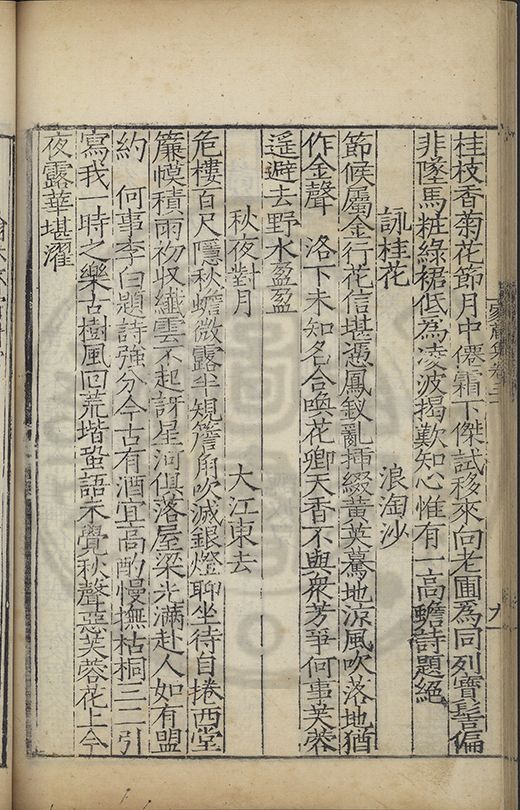 桂枝香菊花節月中僊霜下傑試移來向老圃為同列寶髻偏
非墜馬粧綠裙低為凌波揭歎知心惟有一高蟾詩題絕
詠桂花　浪淘沙
節候屬金行花信堪憑鳳釵亂揷綴黃英驀地涼風吹落地猶
作金聲　洛下未知名合喚花卿天香不與衆芳爭何事芙蓉
遥避去野水盈盈
秋夜對月　大江東去
危樓百尺隱秋蟾微露半規簷角吹滅銀燈聊坐待自捲西堂
簾幙積雨初收纖雲不起訝星河俱落屋梁光滿赴人如有盟
約　何事李白題詩强分今古有酒宜高酌慢撫枯桐三二引
寫我一時之樂古樹風回荒堦蛩語不覺秋聲惡芙蓉花上今
夜露華堪濯
九